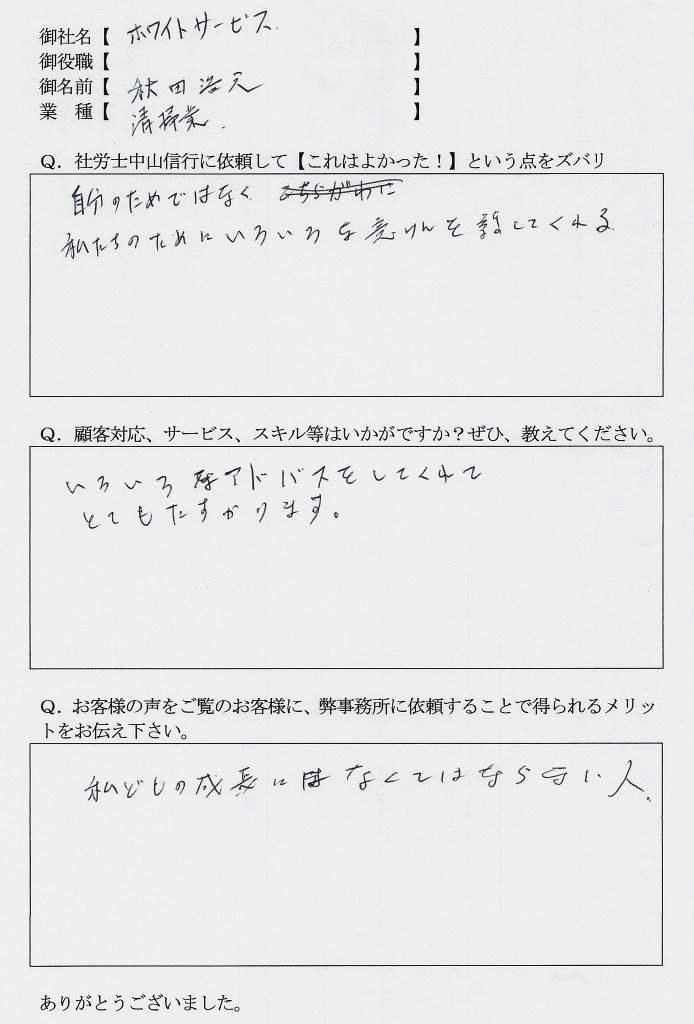 御社名【 ホワイトサービス 】
御役職【 】
御名前【 秋田 】
業　種【 清掃業. 】
Q．社労士中山信行に依頼して【これはよかった！】という点をズバリ
自分のためではなく
私たちのためにいろいろな意けんを話してくれる
Q．顧客対応、サービス、スキル等はいかがですか？ぜひ、教えてください。
いろいろなアドバスをしてくれて
とてもたすかります。
Q．お客様の声をご覧のお客様に、弊事務所に依頼することで得られるメリッ
トをお伝え下さい。
私どもの成長にはなくてはならない人.
ありがとうございました。